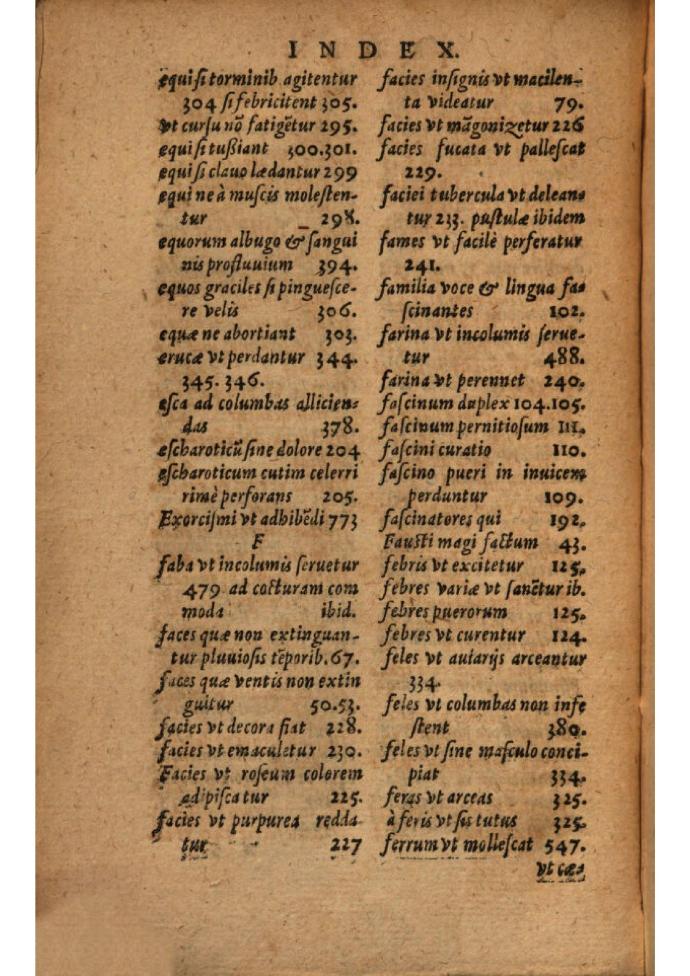 INDEX.
equi ſi torminib agitentur
304 ſi febricitent 305.
vt curſu nō fatigētur 295.
equi ſi tußiant 300.301.
equi ſi clauo lædantur 299
equi ne à muſcis moleſten-
tur 298.
equorum albugo & ſangui
nis profluuium 394.
equos graciles ſi pingueſce-
re velis 306.
equæ ne abortiant 303.
erucæ vt perdantur 344.
345. 346.
eſca ad columbas allicien-
das 378.
eſcharoticū ſine dolore 204
eſcharoticum cutim celerri
rimè perforans 205.
Exorciſmi vt adhibēdi 773
F
faba vt incolumis ſeruetur
479 ad cocturam com
moda ibid.
faces quæ non extinguan-
tur pluuioſis tēporib. 67.
faces quæ ventis non extin
guitur 50.53.
facies vt decora fiat 228.
facies vt emaculetur 230.
Facies vt roſeum colorem
adipiſcatur 225.
facies vt purpurea redda
tur 227
facies inſignis vt macilen-
ta videatur 79.
facies vt māgonizetur 226
facies fucata vt palleſcat
229.
faciei tubercula vt delean-
tur 233. puſtulæ ibidem
fames vt facilè perferatur
241.
familia voce & lingua fa-
ſcinantes 102.
farina vt incolumis ſerue-
tur 488.
farina vt perennet 240.
faſcinum duplex 104.105.
faſcinum pernitioſum 111.
faſcini curatio 110.
faſcino pueri in inuicem
perduntur 109.
faſcinatores qui 192.
Fauſti magi factum 43.
febris vt excitetur 125.
febres variæ vt ſanētur ib.
febres puerorum 125.
febres vt curentur 124.
feles vt auiarijs arceantur
334.
feles vt columbas non infe
ſtent 380.
feles vt ſine maſculo conci-
piat 334.
feras vt arceas 325.
à feris vt ſis tutus 325.
ferrum vt molleſcat 547.
vt cæ-